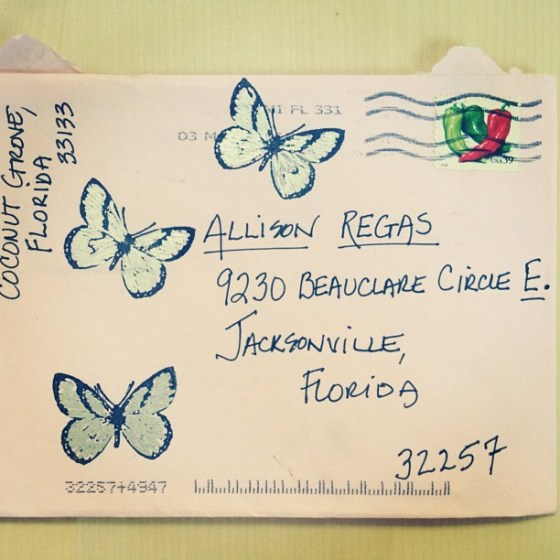 COCONUT GROVE,
FLORIDA
33133
MI FL 331
03 M
USA 39
ALLISON REGAS
9230 BEAUCLARE CIRCLE E.
JACKSONVILLE,
FLORIDA
32257
32257+4947